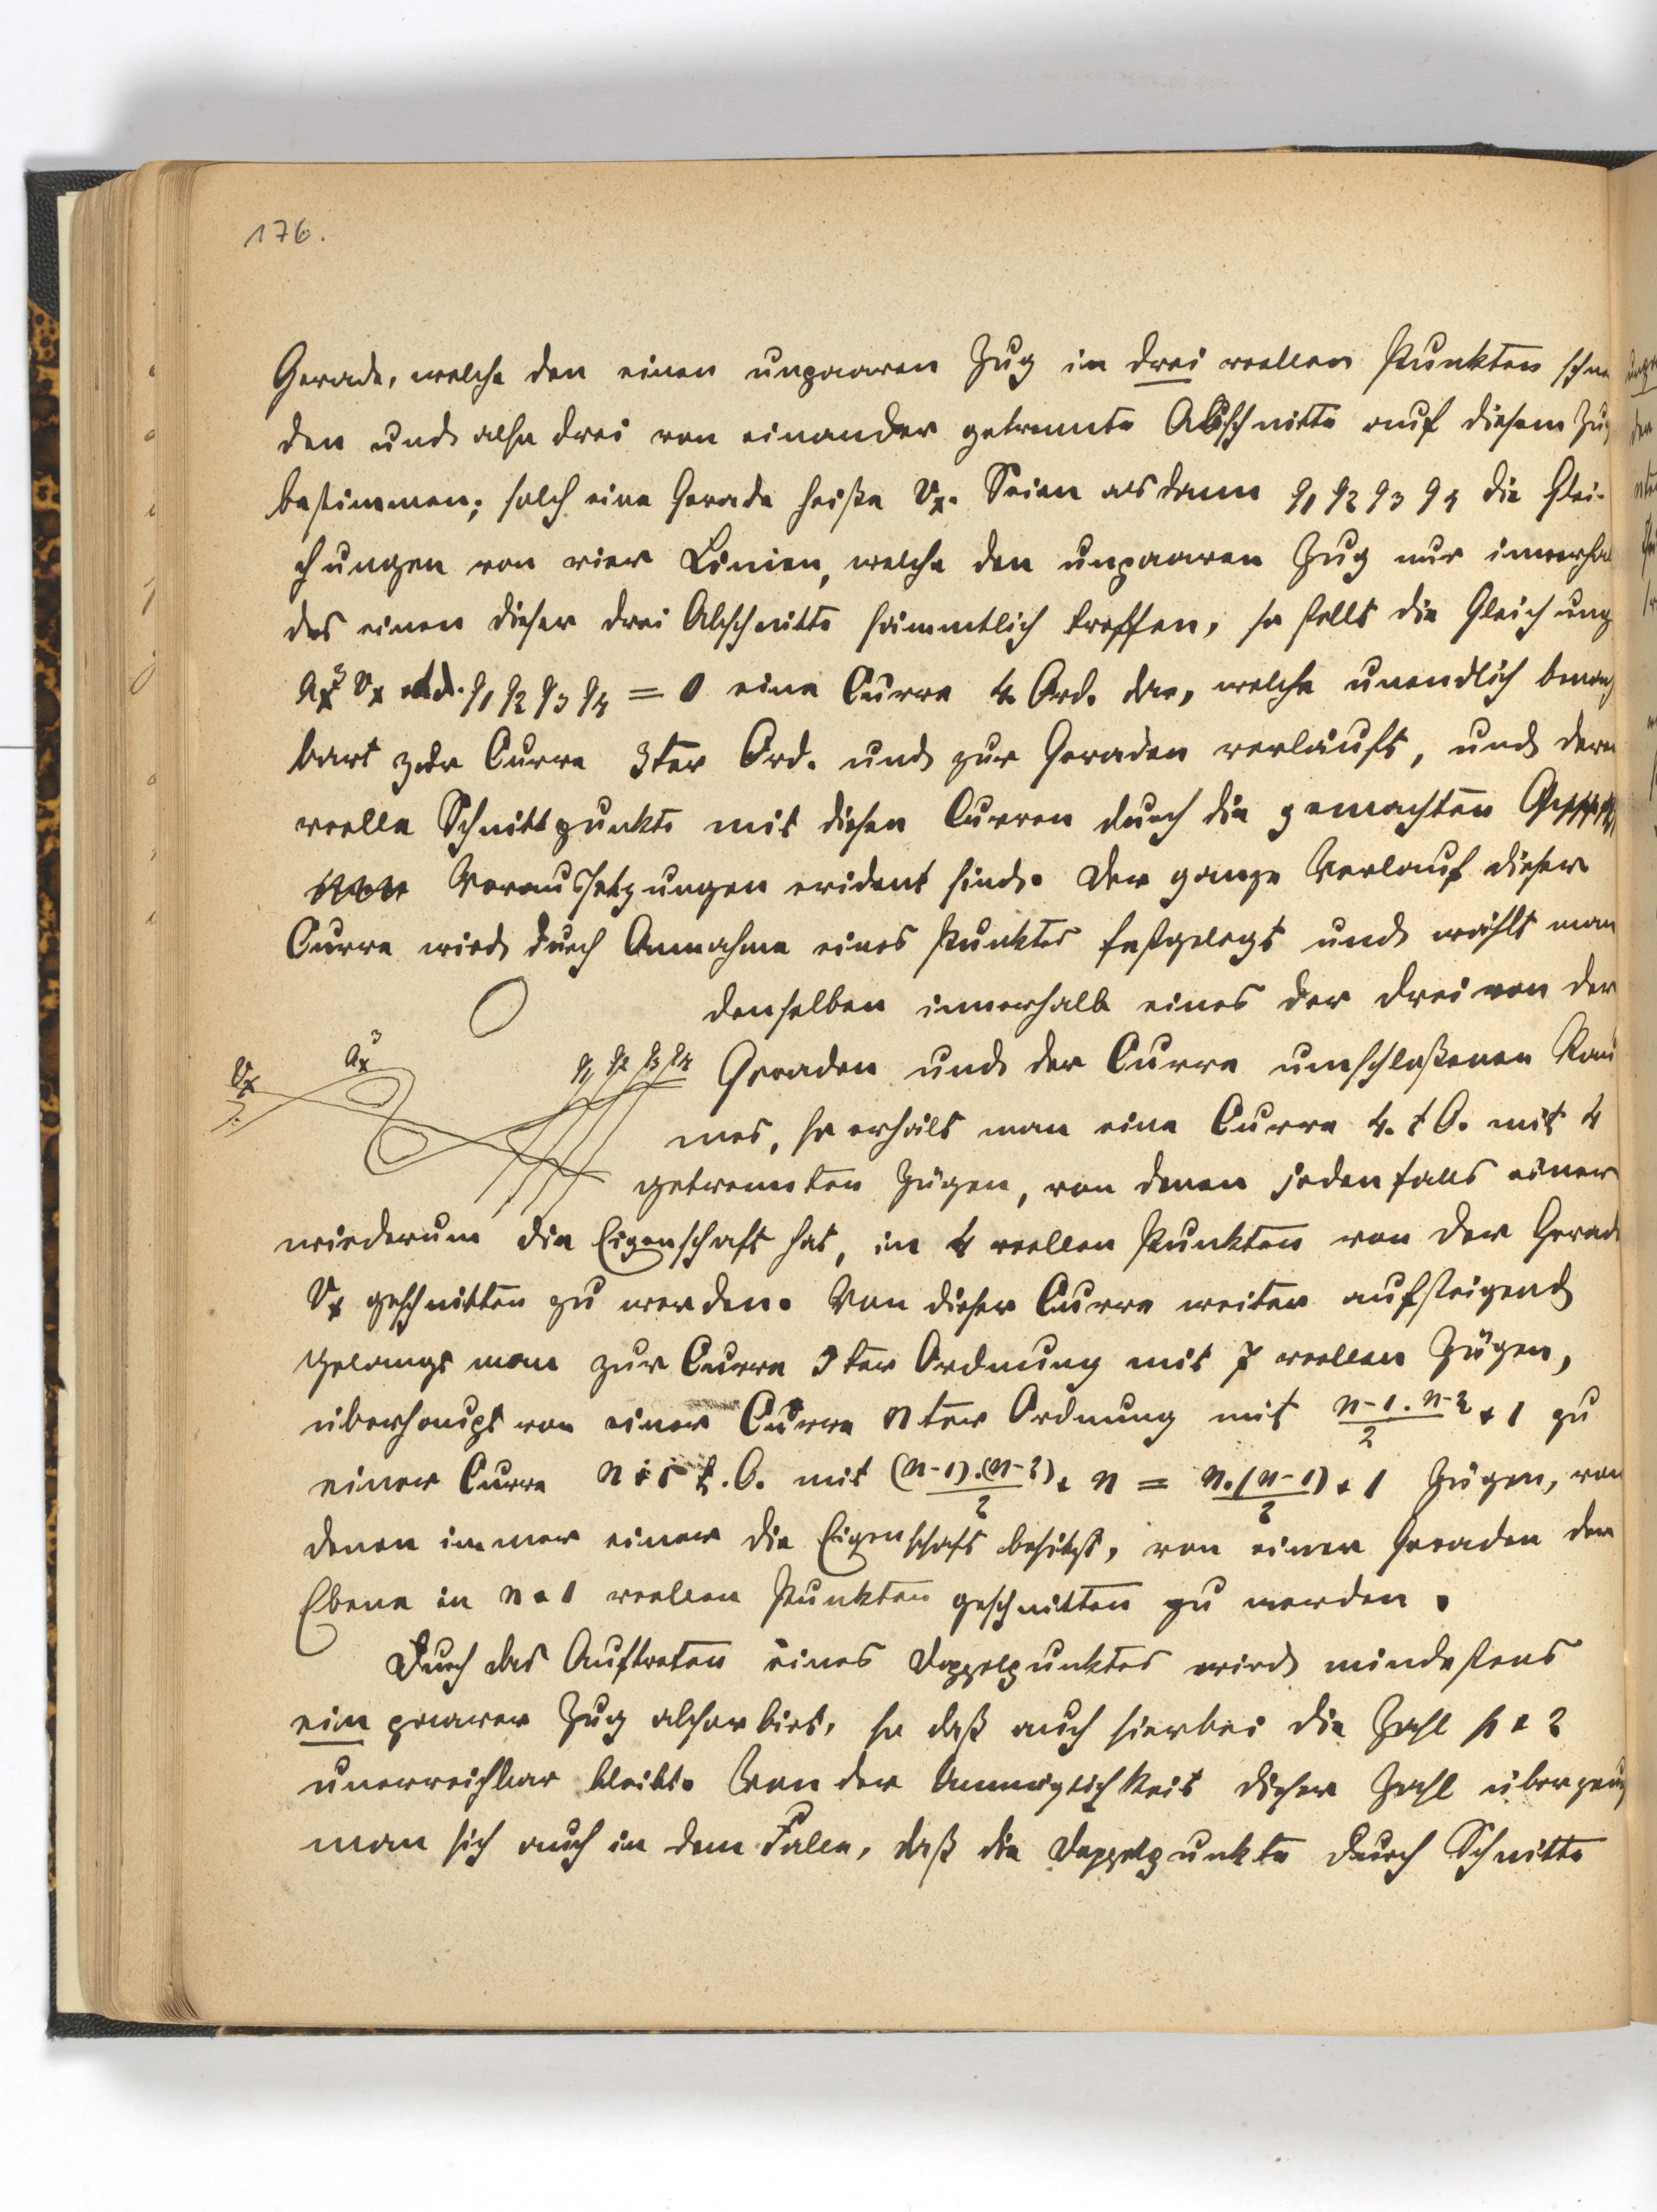 176.
Gerade, welche den einen unpaaren Zug in drei reellen Punkten schne
den und also drei von einander getrennte Abschnitte auf diesem Zug
bestimmen; solch eine Gerade heiße v_x. Seien als dann q_1 q_2 q_3 q_4 die Glei-
chungen von vier Linien, welche den unpaaren Zug nur innerhal
des einen dieser drei Abschnitte sämmtlich treffen, so stellt die Gleichung
a_x^3 v_x + d. q_1 q_2 q_3 q_4 = 0 eine Curve 4. Ord. dar, welche unendlich benach
bart zur Curve 3ter Ord. und zur Geraden verläuft, und deren
reelle Schnittpunkte mit diesen Curven durch die gemachten
Voraussetzungen evident sind. Der ganze Verlauf dieser
Curve wird durch Annahme eines Punktes festgelegt und wählt man
denselben innerhalb eines der drei von der
v_x a_x^3 q_1 q_2 q_3 q_4 Geraden und der Curve umschloßenen Räu
mes, so erhält man eine Curve 4. t O. mit 4
getrennten Zügen, von denen jedenfalls einer
wiederum die Eigenschaft hat, in 4 reellen Punkten von der Gerad
v_x geschnitten zu werden. Von dieser Curve weiter aufsteigend
gelangt man zur Curve 5ter Ordnung mit 7 reellen Zügen,
überhaupt von einer Curve nter Ordnung mit \frac{n-1 . n-2}{2} + 1 zu
einer Curve n+1 t. O. mit \frac{(n-1).(n-2)}{2} + n = \frac{n.(n-1)}{2} + 1 Zügen, von
denen immer einer die Eigenschaft besitzt, von einer Geraden der
Ebene in n+1 reellen Punkten geschnitten zu werden.
Durch das Auftreten eines Doppelpunktes wird mindestens
ein paarer Zug absorbirt, so daß auch hierbei die Zahl p + 2
unerreichbar bleibt. Von der Unmöglichkeit dieser Zahl überzeug
man sich auch in dem Falle, daß die Doppelpunkte durch Schnitte